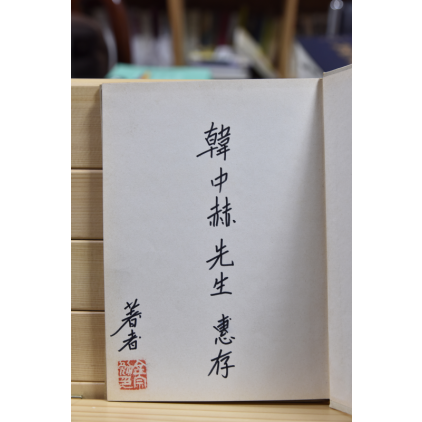 韓中赫先生 惠存
著者